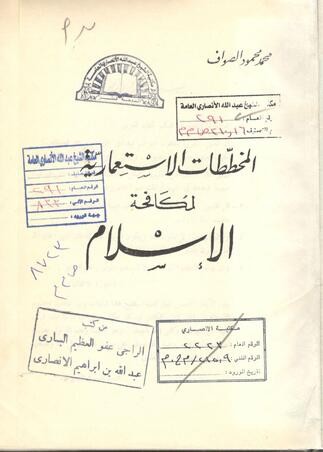 محمد محمود الصواف
مكتبة الشيخ عبد الله الأنصاري العامة
المخططات الاستعمارية
لمكافحة
الإسلام
مكتبة الشيخ عبد الله الأنصاري العامة
الرقم العام:
٢٩١
٨٢٢
جهة الورود:
٨٧٢٣
من كتب
الراجي عفو العظيم الباري
عبد الله بن ابراهيم الانصارى
مكتبة الانصاري
الرقم العام: ٢٢٢٣
الرقم الفني
تاريخ الورود: